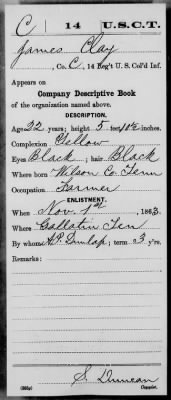 C | 14 | U.S.C.T.
James Clay
, Co. C, 14 Reg't U. S. Col'd Inf.
Appears on
Company Descriptive Book
of the organization named above.
DESCRIPTION.
Age 22 years; height 5 feet 10½ inches.
Complexion Yellow
Eyes Black; hair Black
Where born Wilson Co. Tenn
Occupation Farmer
ENLISTMENT.
When Nov. 1st, 1863.
Where Gallatin Ten
By whom A.P. Dunlap; term 3 y'rs.
Remarks:
S. Duncan
Copyist.